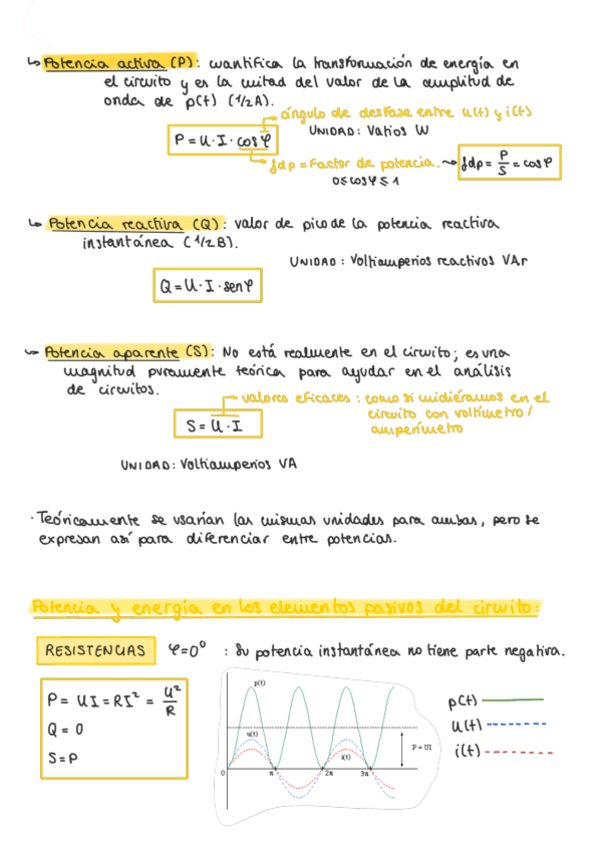 ↳ Potencia activa (P): cuantifica la transformación de energía en
el circuito y es la mitad del valor de la amplitud de
onda de p(t) (1/2A).
ángulo de desfase entre u(t) y i(t)
P = U·I·cosφ
UNIDAD: Vatios W
fdp = Factor de potencia. → fdp = P/S = cosφ
0≤cosφ≤1
↳ Potencia reactiva (Q): valor de pico de la potencia reactiva
instantánea (1/2B).
UNIDAD: Voltiamperios reactivos VAr
Q = U·I·senφ
↳ Potencia aparente (S): No está realmente en el circuito; es una
magnitud puramente teórica para ayudar en el análisis
de circuitos.
valores eficaces: como si midiéramos en el
circuito con voltímetro/
amperímetro
S = U·I
UNIDAD: Voltiamperios VA
· Teóricamente se usarían las mismas unidades para ambas, pero se
expresan así para diferenciar entre potencias.
Potencia y energía en los elementos pasivos del circuito:
RESISTENCIAS φ=0º : Su potencia instantánea no tiene parte negativa.
P = UI = RI² = U²/R
Q = 0
S = P
p(t)
u(t)
i(t)
P = UI
0 π 2π 3π
p(t)
u(t)
i(t)